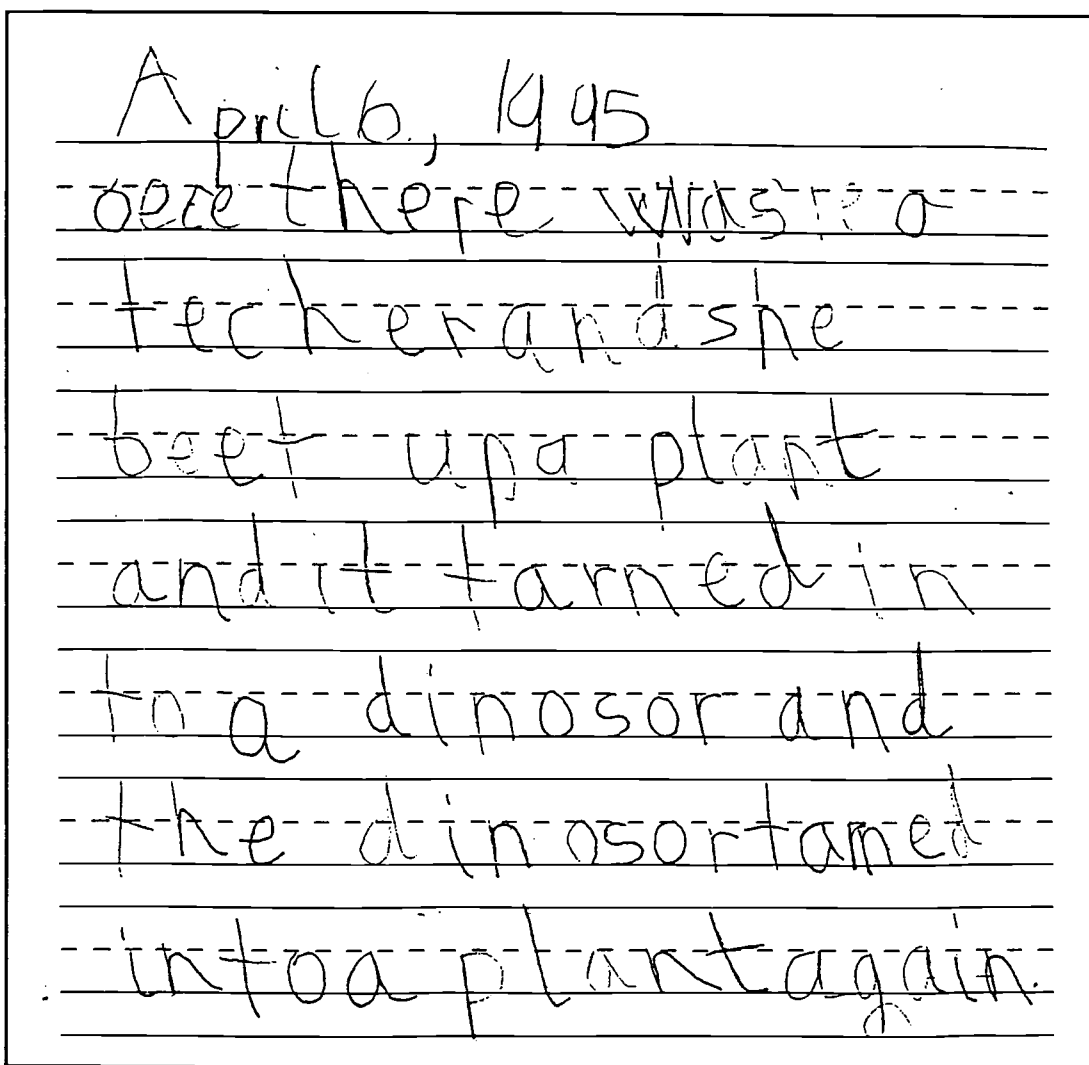 April 6, 1995
there was a
techer and she
beet up a plant
and it tarned in
to a dinosor and
the dinosor tarned
into a plant again.